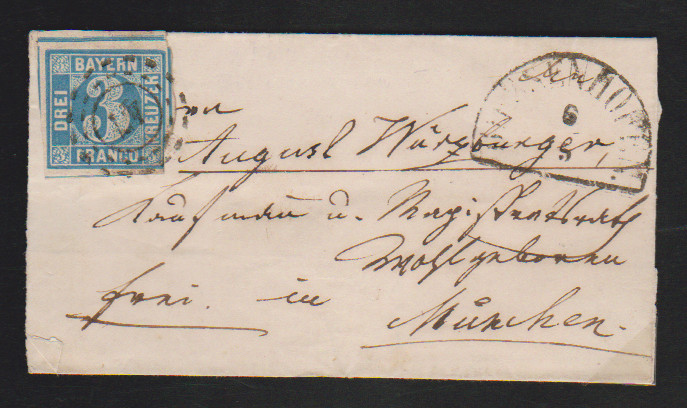 BAYERN
DREI
3
KREUZER
FRANCO
6
5
August Würzburger,
Kaufmann u. Magistratsrath
Wohlgeboren
frei. in
München.